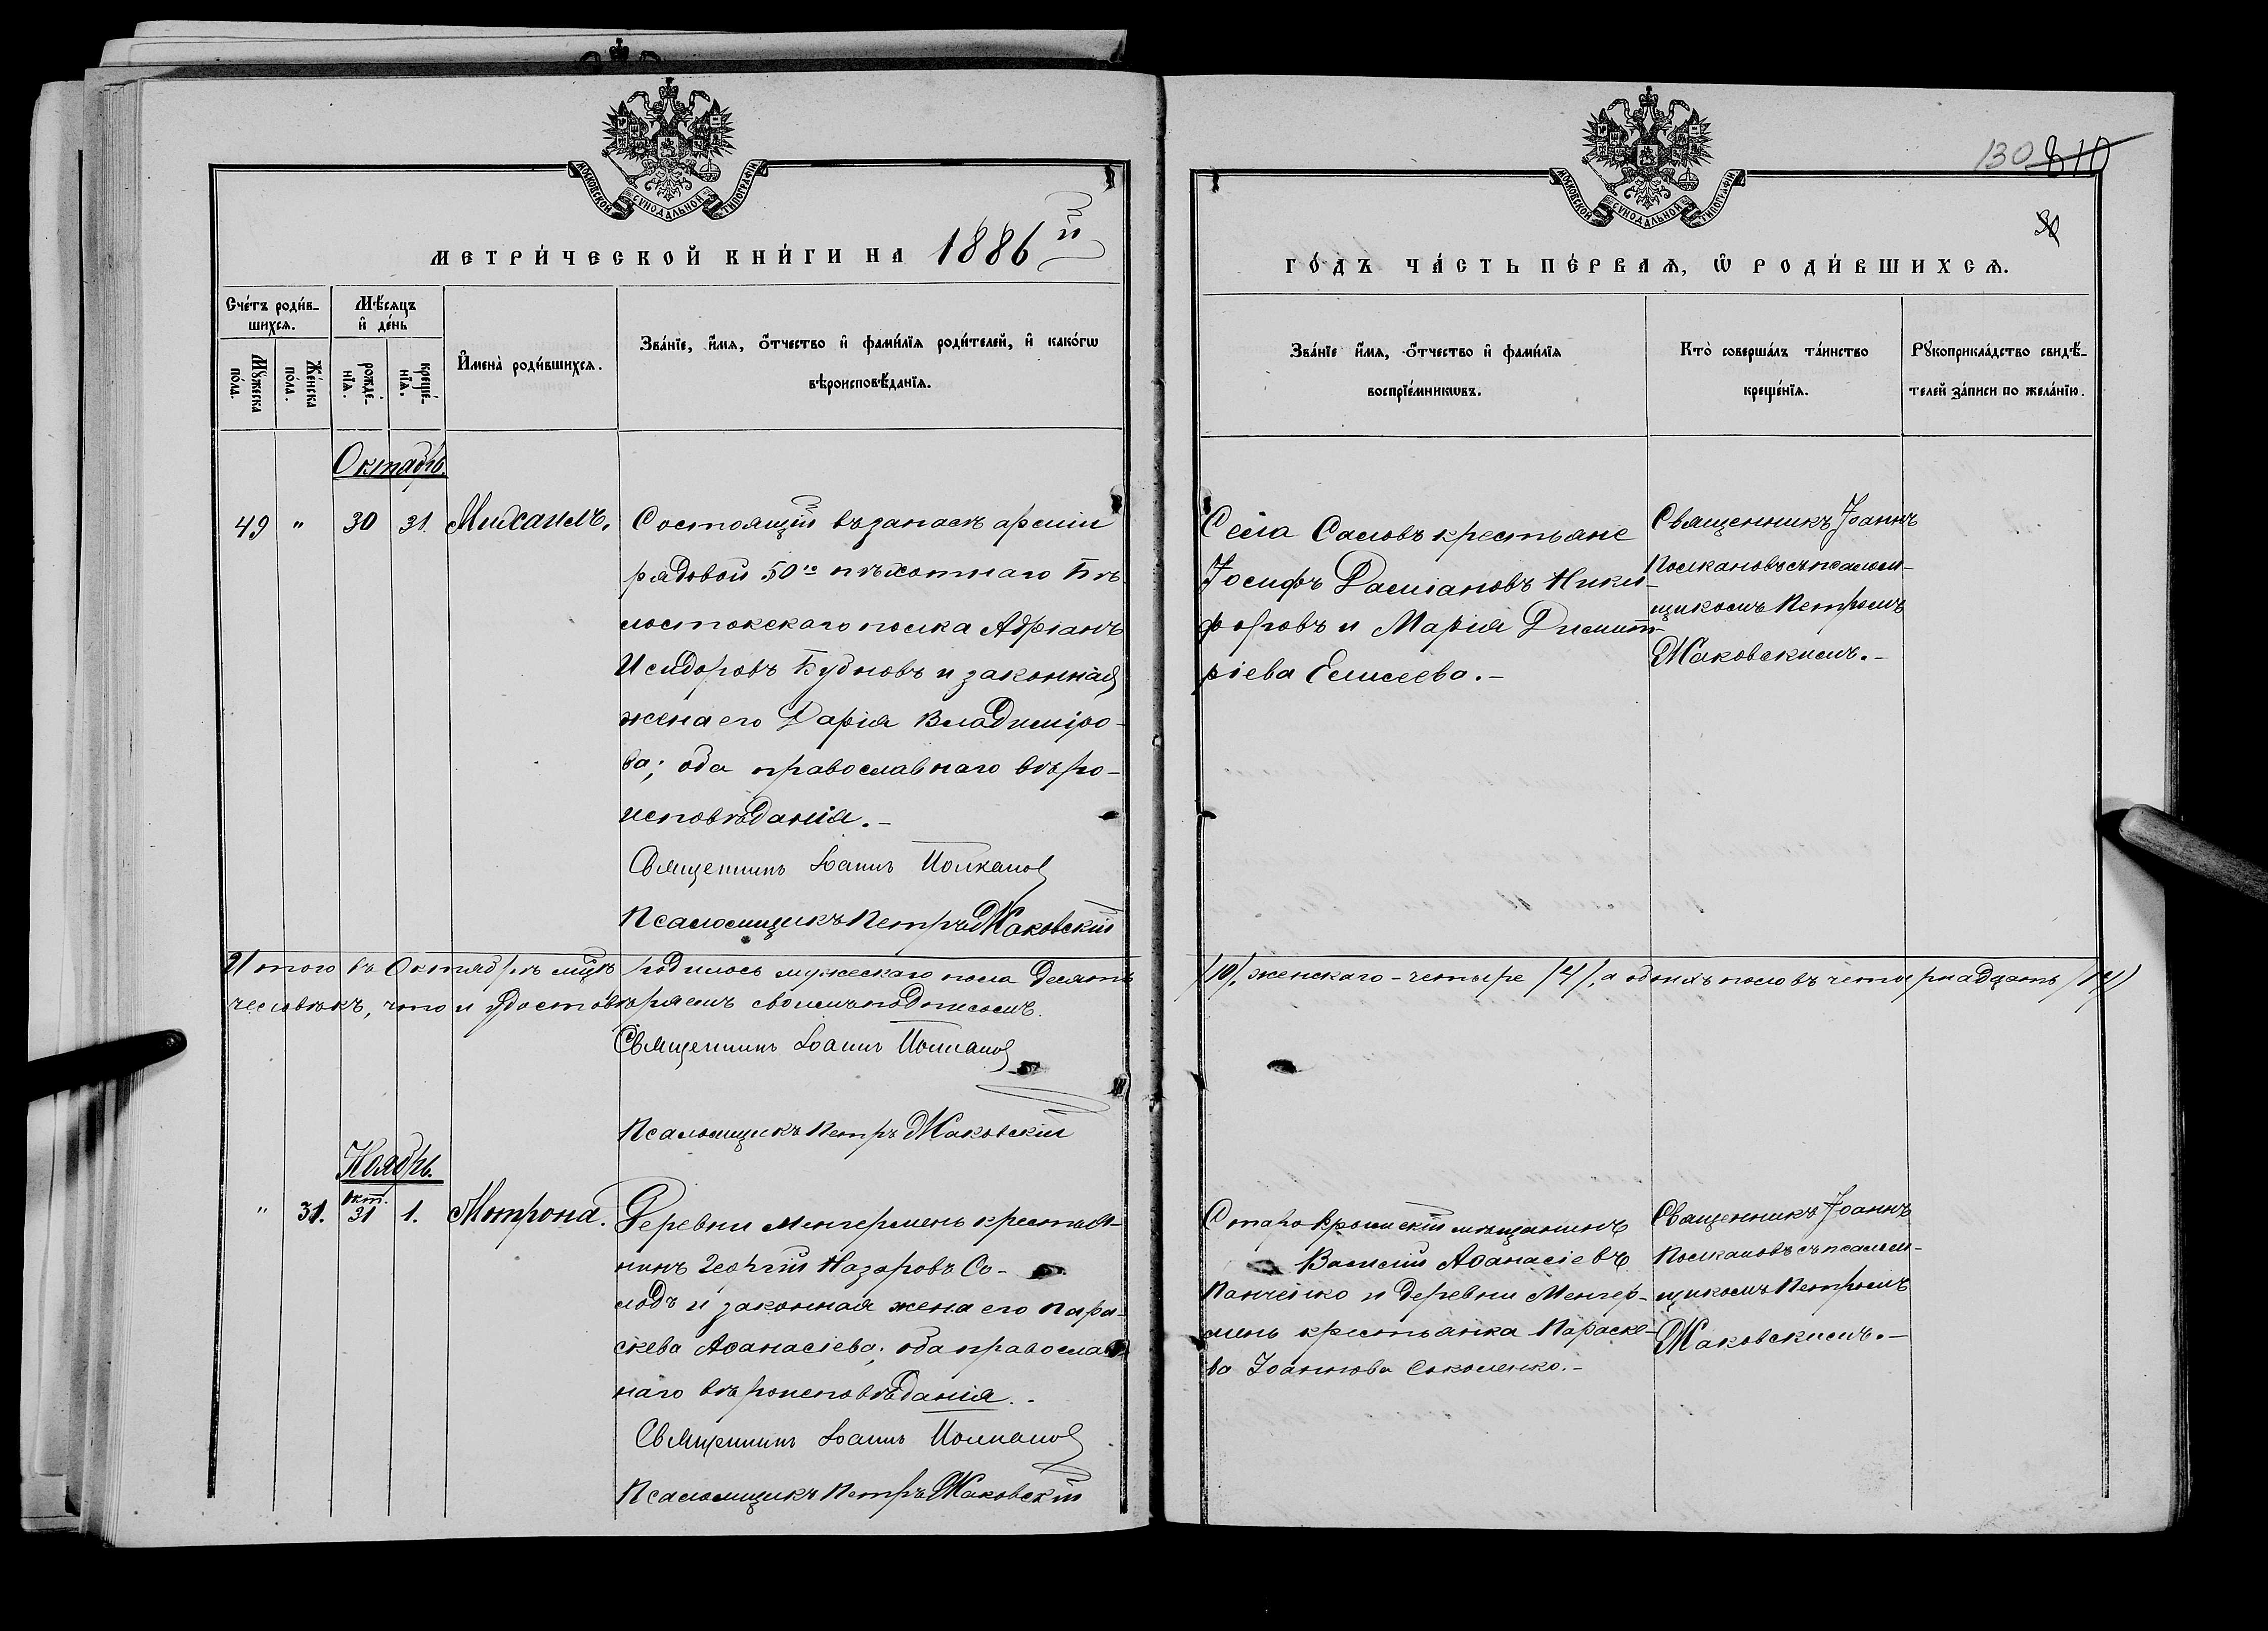 МОСКОВСКОЙ СѴНОДАЛЬНОЙ ТИПОГРАФІИ
МЕТРИ́ЧЕСКОЙ КНИ́ГИ НА 1886й
Сче́тъ роди́в-
шихся.
Мѣ́сяцъ
и҆ де́нь
Мꙋ́жеска
по́ла.
Же́нска
по́ла.
рожде́-
нїѧ.
креще́-
нїѧ.
И҆мена̀ роди́вшихся.
Зва́нїе, и҆́мѧ, ѻ҆́тчество и҆ фами́лїѧ роди́телей, и҆ како́гѡ
вѣроисповѣ́данїѧ.
Октябрь.
49 " 30 31. Михаилъ.
Состоящій въ запасѣ арміи
рядовой 50го пѣхотнаго Бѣ-
лостокскаго полка Адріанъ
Исидоровъ Будновъ и законная
жена его Дарія Владиміро-
ва; оба православнаго вѣро-
исповѣданія.-
Священникъ Іоаннъ Полкановъ
Псаломщикъ Петръ Маковскій
Итого въ Октябрѣ м-цѣ родилось мужескаго пола десять
человѣкъ, что и удостовѣряемъ своимъ подписомъ.
Священникъ Іоаннъ Полкановъ
Псаломщикъ Петръ Маковскій
Ноябрь.
" 31. Окт. 31 1. Мотрона.
Деревни Менгерменъ крестья-
нинъ Георгій Назаровъ Со-
лодъ и законная жена его Пара-
скева Аѳанасіева; оба православ-
наго вѣроисповѣданія.-
Священникъ Іоаннъ Полкановъ
Псаломщикъ Петръ Маковскій
130 810
30
МОСКОВСКОЙ СѴНОДАЛЬНОЙ ТИПОГРАФІИ
ГО́ДЪ ЧА́СТЬ ПЕ́РВАѦ, Ѡ҆ РОДИ́ВШИХСѦ.
Зва́нїе и҆́мѧ, ѻ҆́тчество и҆ фами́лїѧ
воспрїе́мникѡвъ.
Кто̀ соверша́лъ та́инство
креще́нїѧ.
Рꙋкоприкла́дство свидѣ́-
телей за́писи по жела́нїю.
Села Саловъ крестьане
Іосифъ Даміановъ Ники-
форовъ и Марія Димит-
ріева Елисеева.-
Священникъ Іоаннъ
Полкановъ съ псалом-
щикомъ Петромъ
Маковскимъ.-
/10/, женскаго - четыре /4/, а обоихъ половъ четырнадцать /14/
Старо Крымскій мѣщанинъ
Василій Аѳанасіевъ
Панченко и деревни Менгер-
менъ крестьянка Параске-
ва Іоаннова Соколенко.-
Священникъ Іоаннъ
Полкановъ съ псалом-
щикомъ Петромъ
Маковскимъ.-